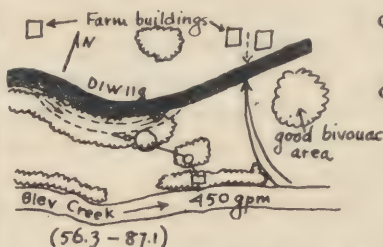 Farm buildings
N
DIW 119
good bivouac
area
Blev Creek
450 gpm
(56.3 – 87.1)